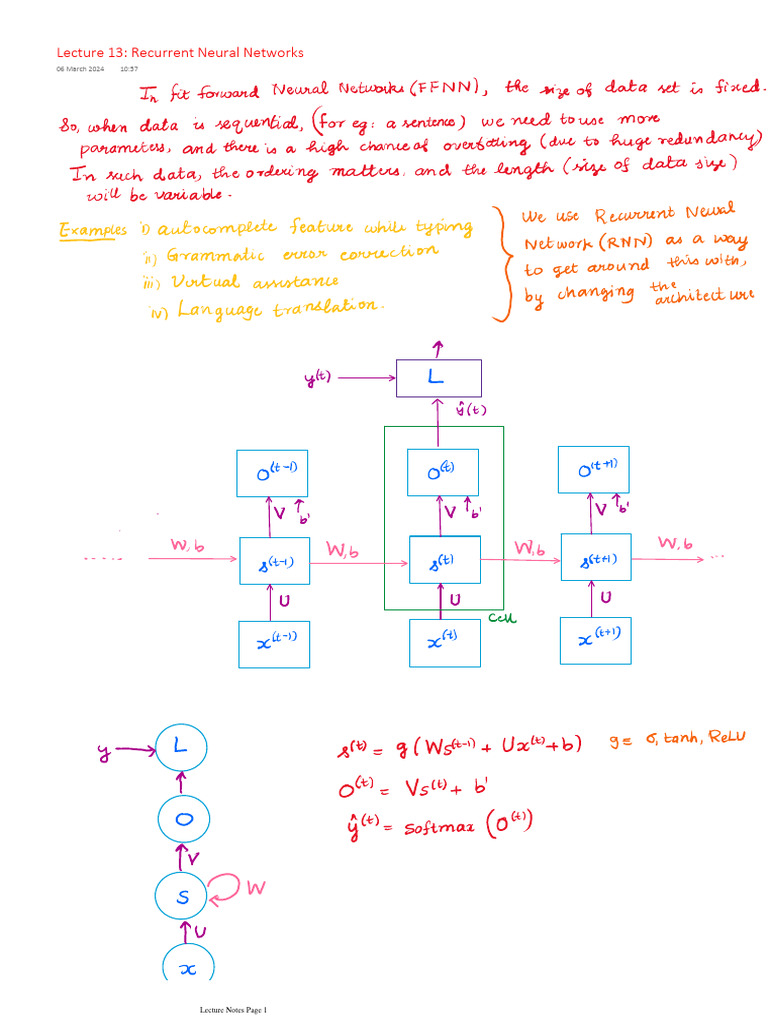 Lecture 13: Recurrent Neural Networks
06 March 2024 10:37
In fit forward Neural Networks (FFNN), the size of data set is fixed.
So, when data is sequential, (for eg: a sentence) we need to use more
parameters, and there is a high chance of overfitting (due to huge redundancy)
In such data, the ordering matters, and the length (size of data size)
will be variable.
Examples i) autocomplete feature while typing
ii) Grammatic error correction
iii) Virtual assistance
iv) Language translation.
We use Recurrent Neural
Network (RNN) as a way
to get around this with,
by changing the
architecture
y(t) L
ŷ(t)
O(t-1) O(t) O(t+1)
V b' V b' V b'
..... W,b s(t-1) W,b s(t) W,b s(t+1) W,b ...
U U U
Cell
x(t-1) x(t) x(t+1)
y L
O
V
S W
U
x
s(t) = g(Ws(t-1) + Ux(t) + b) g = σ, tanh, ReLU
O(t) = Vs(t) + b'
ŷ(t) = softmax (O(t))
Lecture Notes Page 1